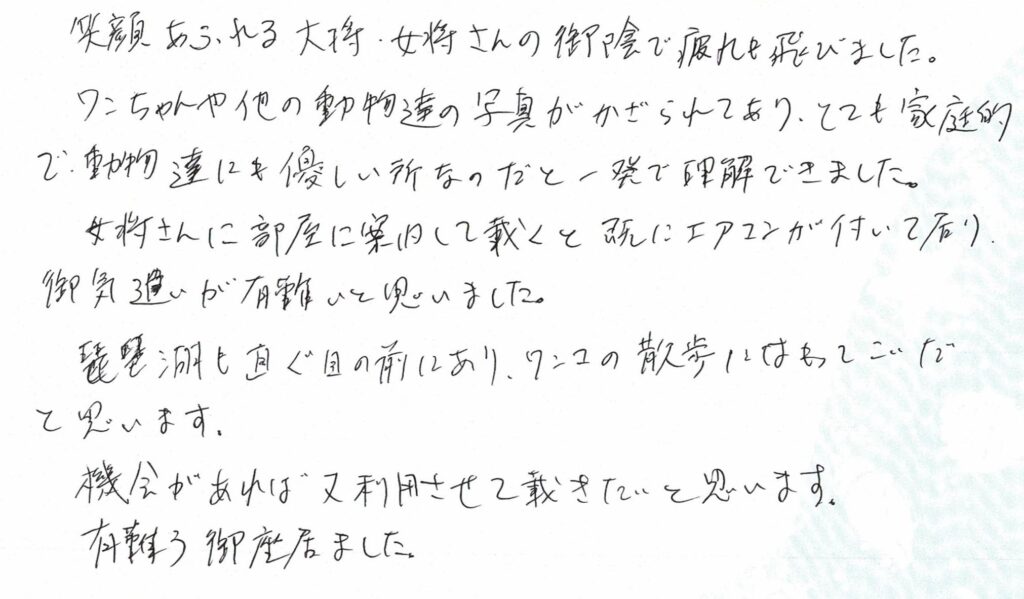 笑顔あふれる大将・女将さんの御陰で疲れも飛びました。
ワンちゃんや他の動物達の写真がかざられてあり、とても家庭的
で、動物達にも優しい所なのだと一発で理解できました。
女将さんに部屋に案内して載くと既にエアコンが付いて居り、
御気遣いが有難いと思いました。
琵琶湖も直ぐ目の前にあり、ワンコの散歩にはもってこいだ
と思います。
機会があれば又利用させて載きたいと思います。
有難う御座居ました。